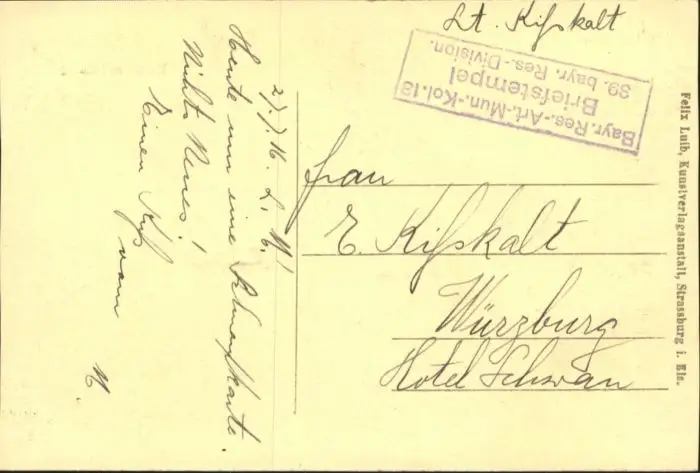 Lt. Kißkalt
Bayr. Res.-Art.-Mun.-Kol. 13
Briefstempel
39. bayr. Res.-Division.
27. 7. 16. L. M!
Heute nur eine
Nichts Neues!
Einen Kuß vom
M
Frau
E. Kißkalt
Würzburg
Hotel Schwan
Felix Luib, Kunstverlagsanstalt, Strassburg i. Els.